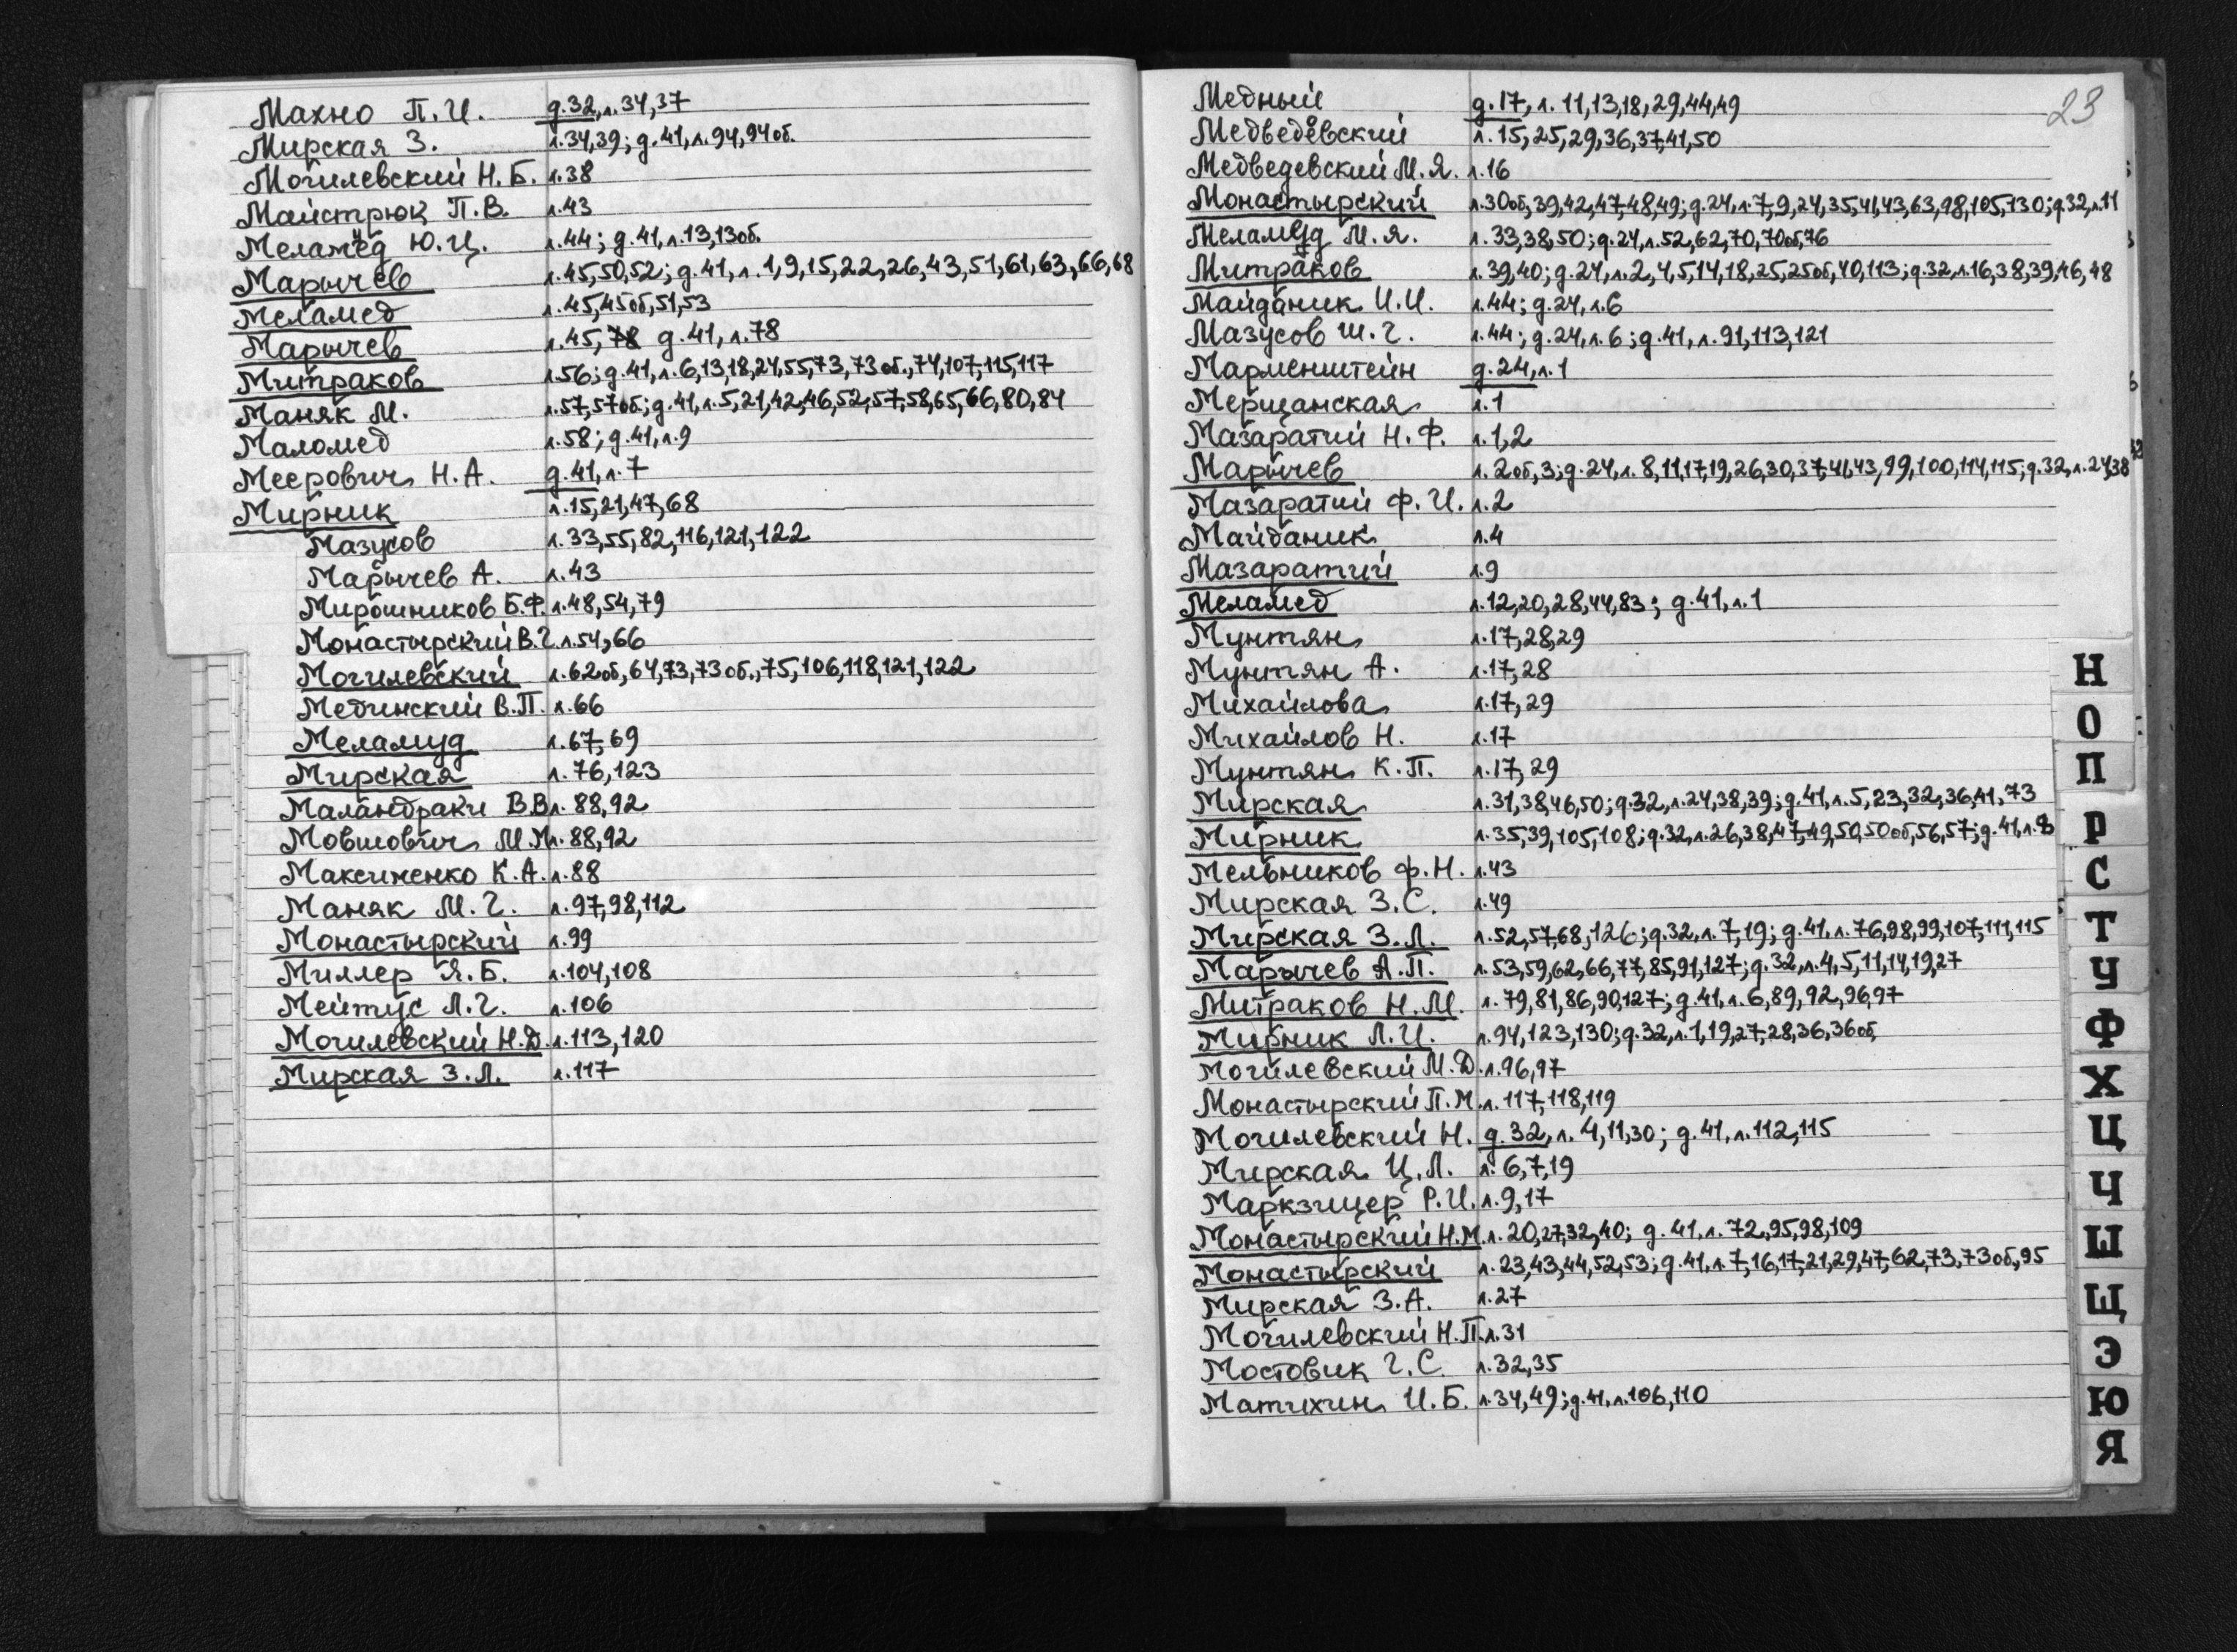 Махно П.И. д.32, л.34,37
Мирская З. л.34,39; д.41, л.94,94об.
Могилевский Н.Б. л.38
Майстрюк П.В. л.43
Меламед Ю.Ц. л.44; д.41, л.13,13об.
Марычев л.45,50,52; д.41, л.1,9,15,22,26,43,51,61,63,66,68
Меламед л.45,45об,51,53
Марычев л.45, д.41, л.78
Митраков л.56; д.41, л.6,13,18,24,55,73,73об.,74,107,115,117
Маняк М. л.57,57об; д.41, л.5,21,42,46,52,57,58,65,66,80,84
Маломед л.58; д.41, л.9
Меерович Н.А. д.41, л.7
Мирник л.15,21,47,68
Мазусов л.33,55,82,116,121,122
Марычев А. л.43
Мирошников Б.Ф. л.48,54,79
Монастырский В.Г. л.54,66
Могилевский л.62об,64,73,73об.,75,106,118,121,122
Мединский В.П. л.66
Меламуд л.67,69
Мирская л.76,123
Маландраки В.В. л.88,92
Мовшович М.М. л.88,92
Максименко К.А. л.88
Маняк М.Г. л.97,98,112
Монастырский л.99
Миллер Я.Б. л.104,108
Мейтус Л.Г. л.106
Могилевский Н.Д. л.113,120
Мирская З.Л. л.117
23
Медный д.17, л.11,13,18,29,44,49
Медведевский л.15,25,29,36,37,41,50
Медведевский М.Я. л.16
Монастырский л.30об,39,42,47,48,49; д.24, л.7,9,24,35,41,43,63,98,105,130; д.32, л.11
Меламуд М.Я. л.33,38,50; д.24, л.52,62,70,70об,76
Митраков л.39,40; д.24, л.2,4,5,14,18,25,25об,40,113; д.32, л.16,38,39,46,48
Майданик И.И. л.44; д.24, л.6
Мазусов Ш.Г. л.44; д.24, л.6; д.41, л.91,113,121
Марменштейн д.24, л.1
Мерщанская л.1
Мазаратий Н.Ф. л.1,2
Марычев л.2об,3; д.24, л.8,11,17,19,26,30,37,41,43,99,100,114,115; д.32, л.24,38
Мазаратий Ф.И. л.2
Майданик л.4
Мазаратий л.9
Меламед л.12,20,28,44,83; д.41, л.1
Мунтян л.17,28,29
Мунтян А. л.17,28
Михайлова л.17,29
Михайлов Н. л.17
Мунтян К.П. л.17,29
Мирская л.31,38,46,50; д.32, л.24,38,39; д.41, л.5,23,32,36,41,73
Мирник л.35,39,105,108; д.32, л.26,38,47,49,50,50об,56,57; д.41, л.
Мельников Ф.Н. л.43
Мирская З.С. л.49
Мирская З.Л. л.52,57,68,126; д.32, л.7,19; д.41, л.76,98,99,107,111,115
Марычев А.П. л.53,59,62,66,77,85,91,127; д.32, л.4,5,11,14,19,27
Митраков Н.М. л.79,81,86,90,127; д.41, л.6,89,92,96,97
Мирник Л.И. л.94,123,130; д.32, л.1,19,27,28,36,36об,
Могилевский М.Д. л.96,97
Монастырский П.М. л.117,118,119
Могилевский Н. д.32, л.4,11,30; д.41, л.112,115
Мирская Ц.Л. л.6,7,19
Маркзицер Р.И. л.9,17
Монастырский Н.М. л.20,27,32,40; д.41, л.72,95,98,109
Монастырский л.23,43,44,52,53; д.41, л.7,16,17,21,29,47,62,73,73об,95
Мирская З.А. л.27
Могилевский Н.П. л.31
Мостовик Г.С. л.32,35
Матихин И.Б. л.34,49; д.41, л.106,110
Н
О
П
Р
С
Т
У
Ф
Х
Ц
Ч
Ш
Щ
Э
Ю
Я